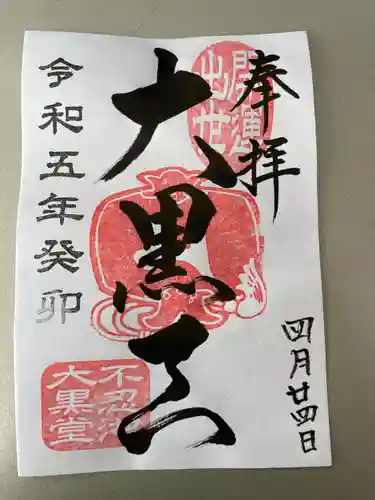 奉拝
開運
出世
大黒天
四月廿四日
令和五年癸卯
不忍池
大黒堂